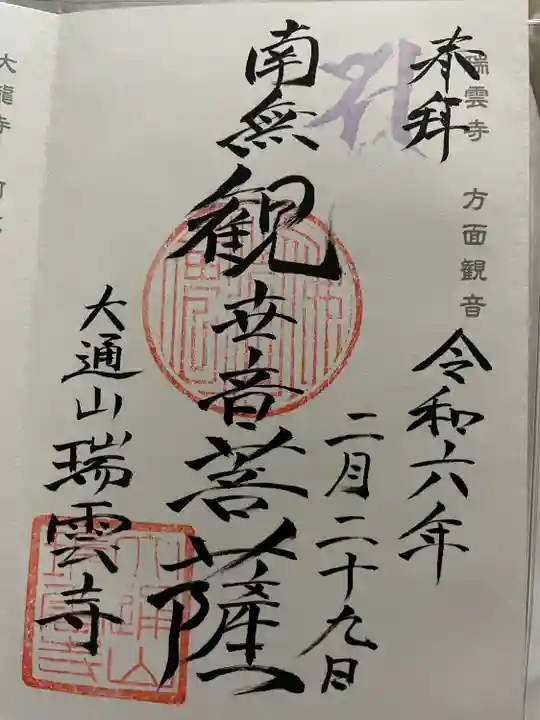 瑞雲寺 方面観音
奉拝
令和六年
二月二十九日
南無観世音菩薩
大通山瑞雲寺
大龍寺